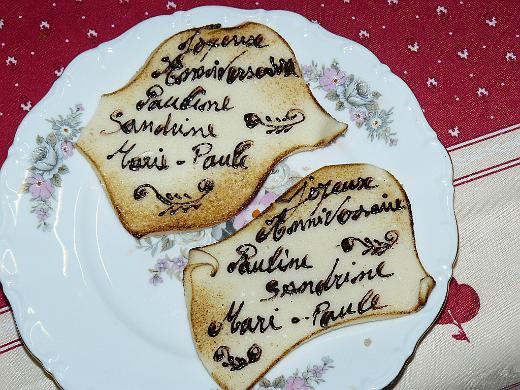 Joyeuse
Anniversaire
Pauline
Sandrine
Marie-Paule
Joyeux
Anniversaire
Pauline
Sandrine
Mari-Paule